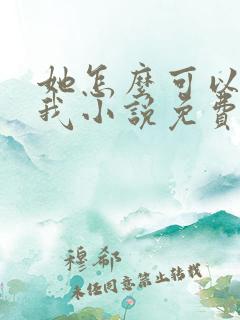 她怎麼可以
我小說免費
穆郗
未任同意禁止转载